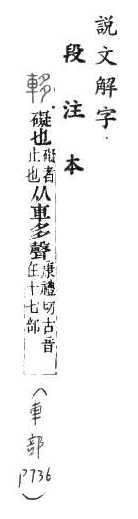 說文解字.
段注本
軫
礙也礙者止也从車多聲康禮切古音在十七部
(車部P736)